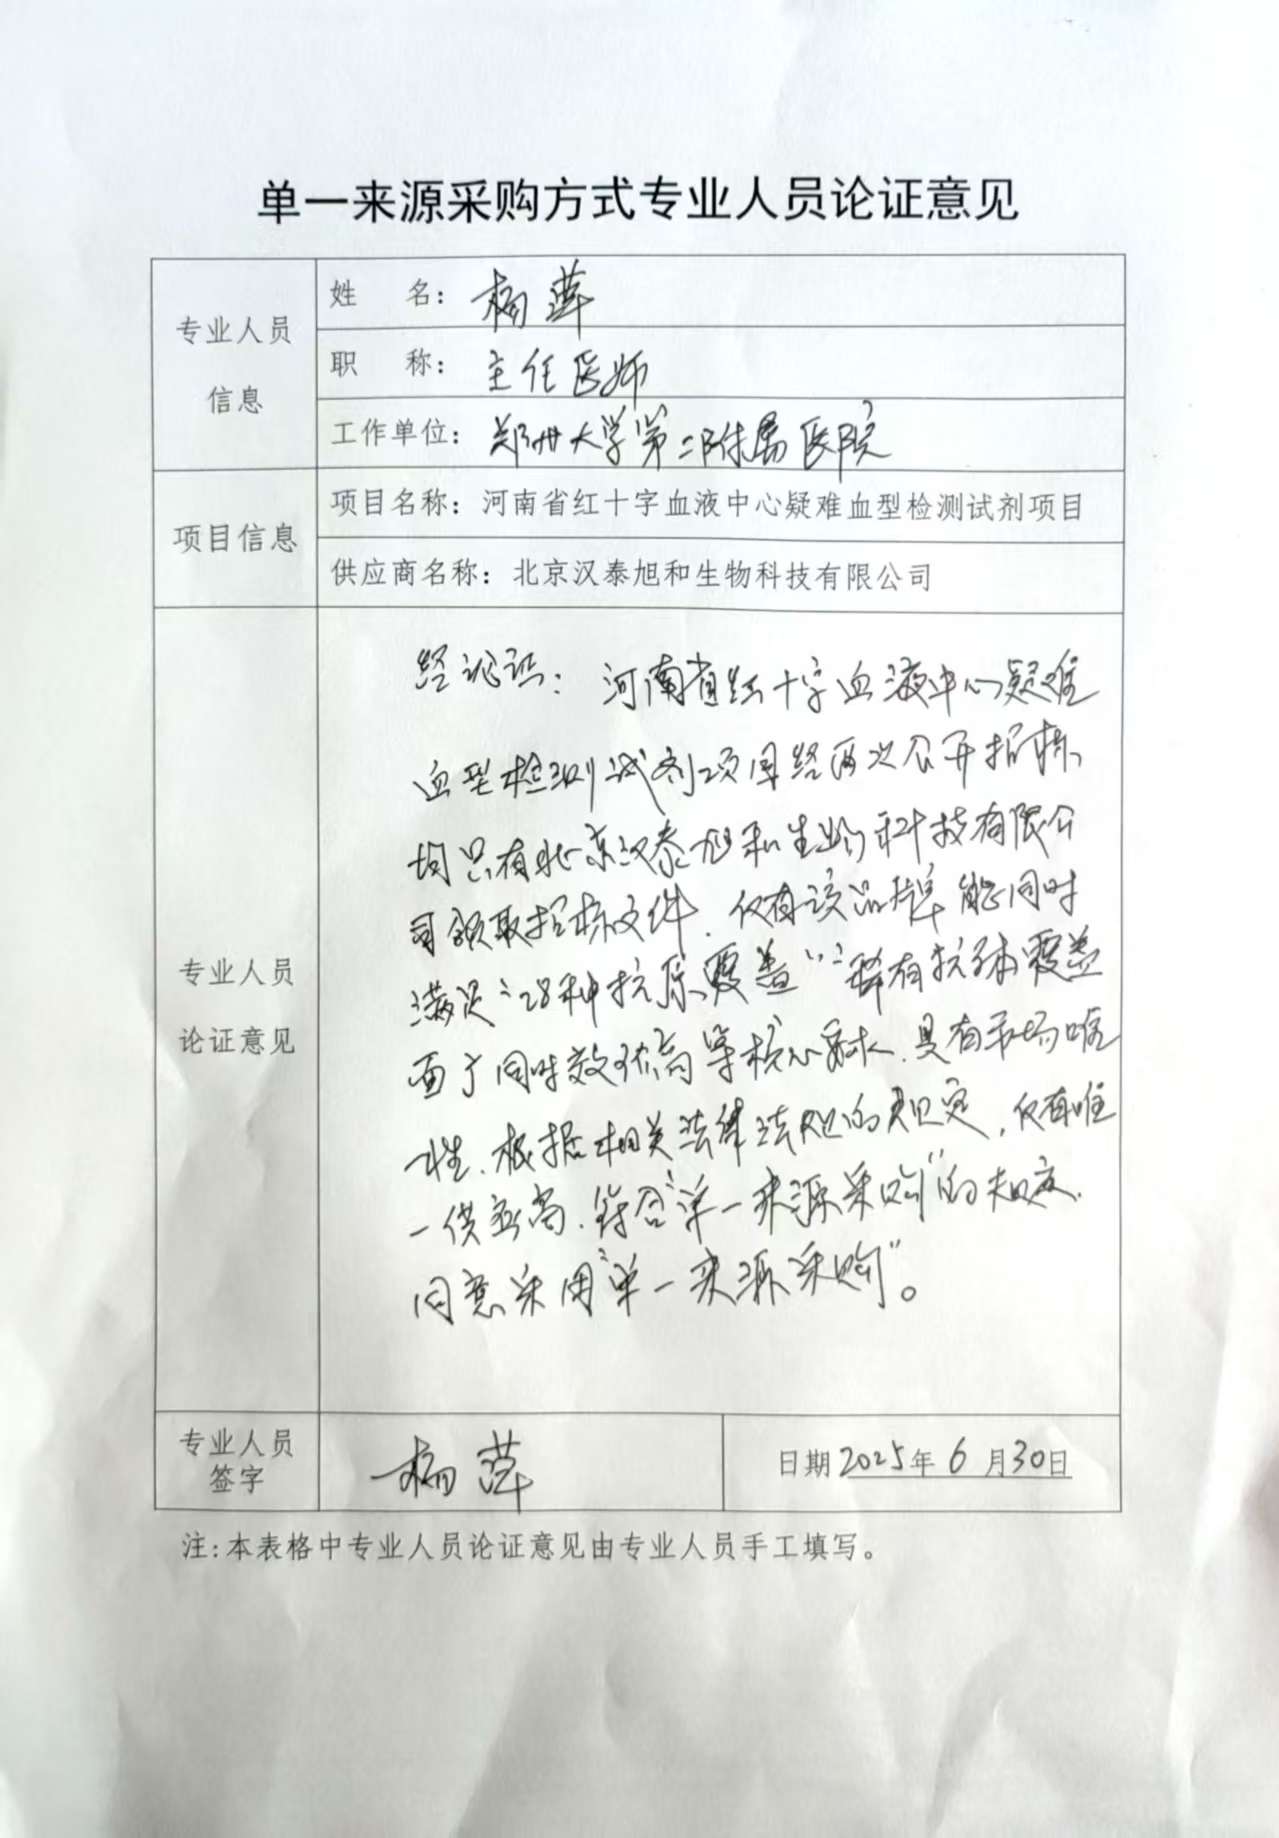 单一来源采购方式专业人员论证意见
专业人员
信息
姓 名：杨萍
职 称：主任医师
工作单位：郑州大学第二附属医院
项目信息
项目名称：河南省红十字血液中心疑难血型检测试剂项目
供应商名称：北京汉泰旭和生物科技有限公司
专业人员
论证意见
经论证：河南省红十字血液中心疑难
血型检测试剂项目经两次公开招标
均只有北京汉泰旭和生物科技有限公
司领取招标文件．仅有该品牌能同时
满足“28种抗原覆盖”“稀有抗体覆盖
面广同时效价高等核心要求．具有市场唯
一性．根据相关法律法规的规定，仅有唯
一供应商．符合“单一来源采购”的规定．
同意采用“单一来源采购”。
专业人员
签字
杨萍
日期2025年6月30日
注:本表格中专业人员论证意见由专业人员手工填写。